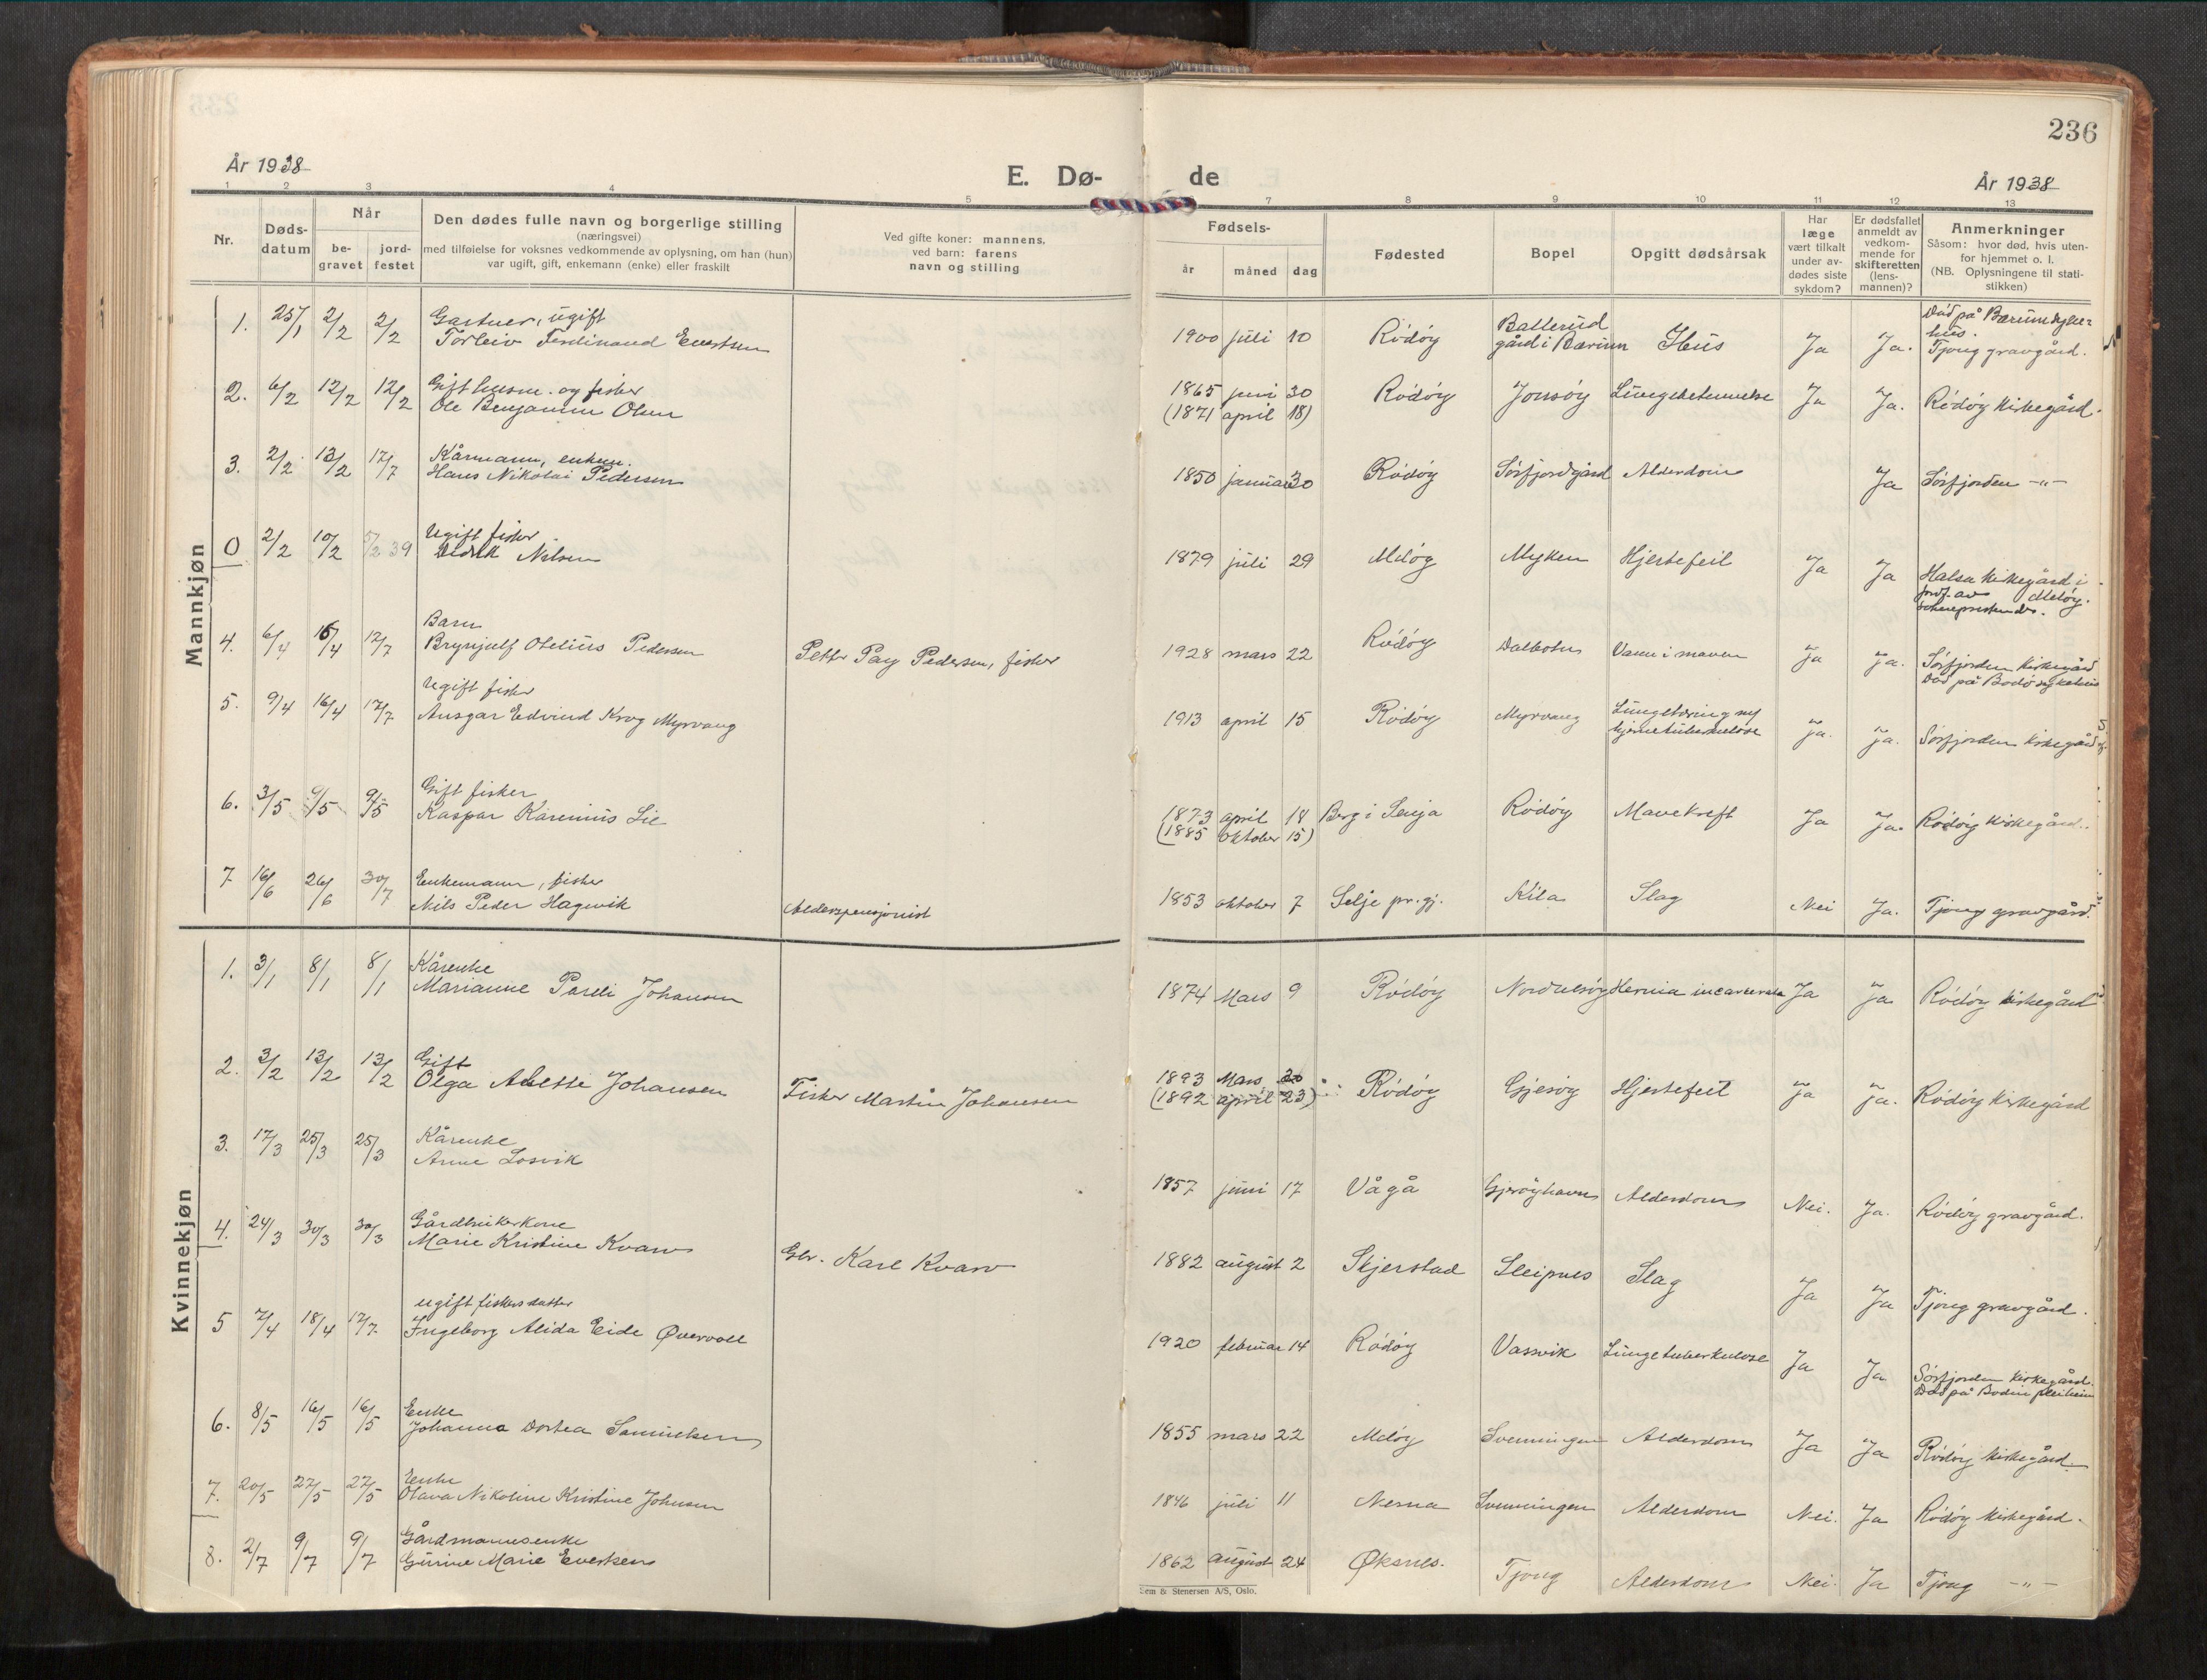 236
År 1938
E. Dø-
de
År 1938
1 2 3 4 5 7 8 9 10 11 12 13
Nr.
Døds-
datum
Når
be-
gravet
jord-
festet
Den dødes fulle navn og borgerlige stilling
(næringsvei)
med tilføielse for voksnes vedkommende av oplysning, om han (hun)
var ugift, gift, enkemann (enke) eller fraskilt
Ved gifte koner: mannens,
ved barn: farens
navn og stilling
Fødsels-
år måned dag
Fødested
Bopel
Opgitt dødsårsak
Har
læge
vært tilkalt
under av-
dødes siste
sykdom?
Er dødsfallet
anmeldt av
vedkom-
mende for
skifteretten
(lens-
mannen)?
Anmerkninger
Såsom: hvor død, hvis uten-
for hjemmet o. l.
(NB. Oplysningene til stati-
stikken)
Mannkjøn
Gartner, ugift
1. 25/1 2/2 2/2 Torleiv Ferdinand Evertsen 1900 juli 10 Rödöy Ballerud
gård i Bærum Hus Ja Ja. Död på Bærum syke-
hus.
Tjong gravgård.
Gift husm. og fisker
2. 6/2 12/2 12/2 Ole Benjamin Olsen 1865 juni 30 Rödöy Jonsöy Lungebetennelse Ja Ja. Rödöy kirkegård.
(1871 april 18)
Kårmann, enkem.
3. 2/2 13/2 17/7 Hans Nikolai Pedersen 1850 januar 30 Rödöy Sörfjordgård Alderdom Ja Sörfjorden -"-
Ugift fisker
0 2/2 10/2 5/2 39 Nilsen 1879 juli 29 Melöy Myken Hjertefeil Ja Ja Halsa kirkegård i
Melöy.
Barn
4. 6/4 16/4 17/7 Brynjulf Otelius Pedersen Petter Pay Pedersen, fisker 1928 mars 22 Rödöy Dalbotn Vann i maven Ja Ja. Sörfjorden kirkegård
Död på Bodö sykehus
Ugift fisker
5. 9/4 16/4 17/7 Ansgar Edvind Krog Myrvang 1913 april 15 Rödöy Myrvang Lungetæring og
hjernetuberkulose Ja. Ja. Sörfjorden kirkegård
Gift fisker
6. 3/5 9/5 9/5 Kaspar Karenius Lie 1873 april 18 Berg i Senja Rödöy Mavekreft Ja Ja. Rödöy kirkegård.
(1885 oktober 15)
Enkemann, fisker
7 16/6 26/6 30/7 Nils Peder Hagevik Alderspensjonist 1853 oktober 7 Selje pr.gj. Kila Slag Nei Ja. Tjong gravgård.
Kvinnekjøn
Kårenke
1. 3/1 8/1 8/1 Marianne Pareli Johansen 1874 Mars 9 Rödöy Nordnesöy Hernia incarcerata Ja Ja. Rödöy kirkegård
Gift
2. 3/2 13/2 13/2 Olga Alette Johansen Fisker Martin Johansen 1893 Mars 20 Rödöy Gjesöy Hjertefeil Ja Ja. Rödöy kirkegård
(1892 april 23)
Kårenke
3. 17/3 25/3 25/3 Anne Losvik 1857 juni 17 Vågå Gjeröyhavn Alderdom Nei. Ja. Rödöy gravgård.
Gårdbrukerkone
4. 24/3 30/3 30/3 Marie Kristine Kvarv Gbr. Karl Kvarv 1882 august 2 Skjerstad Sleipnes Slag Ja Ja Tjong gravgård.
ugift fiskersdatter
5 7/4 18/4 17/7 Ingeborg Alida Eide Övervoll 1920 februar 14 Rödöy Vassvik Lungetuberkulose Ja Ja Sörfjorden kirkegård.
Död på Bodin pleiheim
Enke
6. 8/5 16/5 16/5 Johanna Dortea Samuelsen 1855 mars 22 Melöy Svenningen Alderdom Ja Ja Rödöy kirkegård
Enke
7. 20/5 27/5 27/5 Olava Nikoline Kristine Johnsen 1846 juli 11 Nesna Svenningen Alderdom Nei. Ja Rödöy kirkegård.
Gårdmannsenke
8. 2/7 9/7 9/7 Gurine Marie Evertsen 1862 august 24 Øksnes. Tjong Alderdom Nei. Ja Tjong -"-
Sem & Stenersen A/S, Oslo.